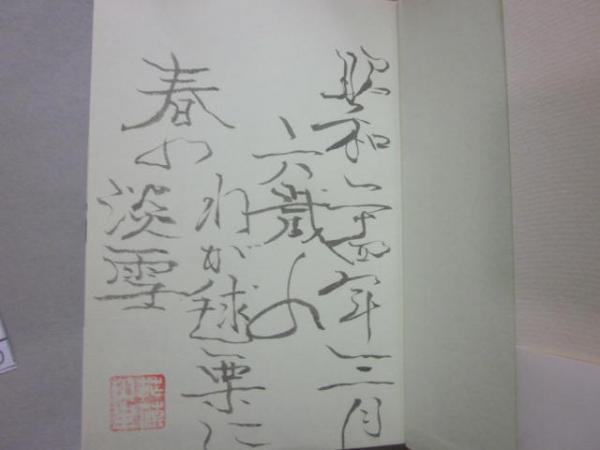 昭和二十四年三月
六歳の
わが毬栗に
春の淡雪